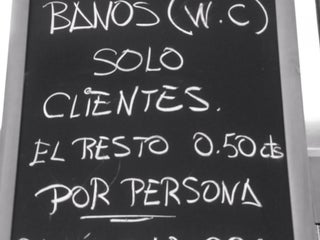 BAÑOS (W.C)
SOLO
CLIENTES.
EL RESTO 0.50 cts
POR PERSONA